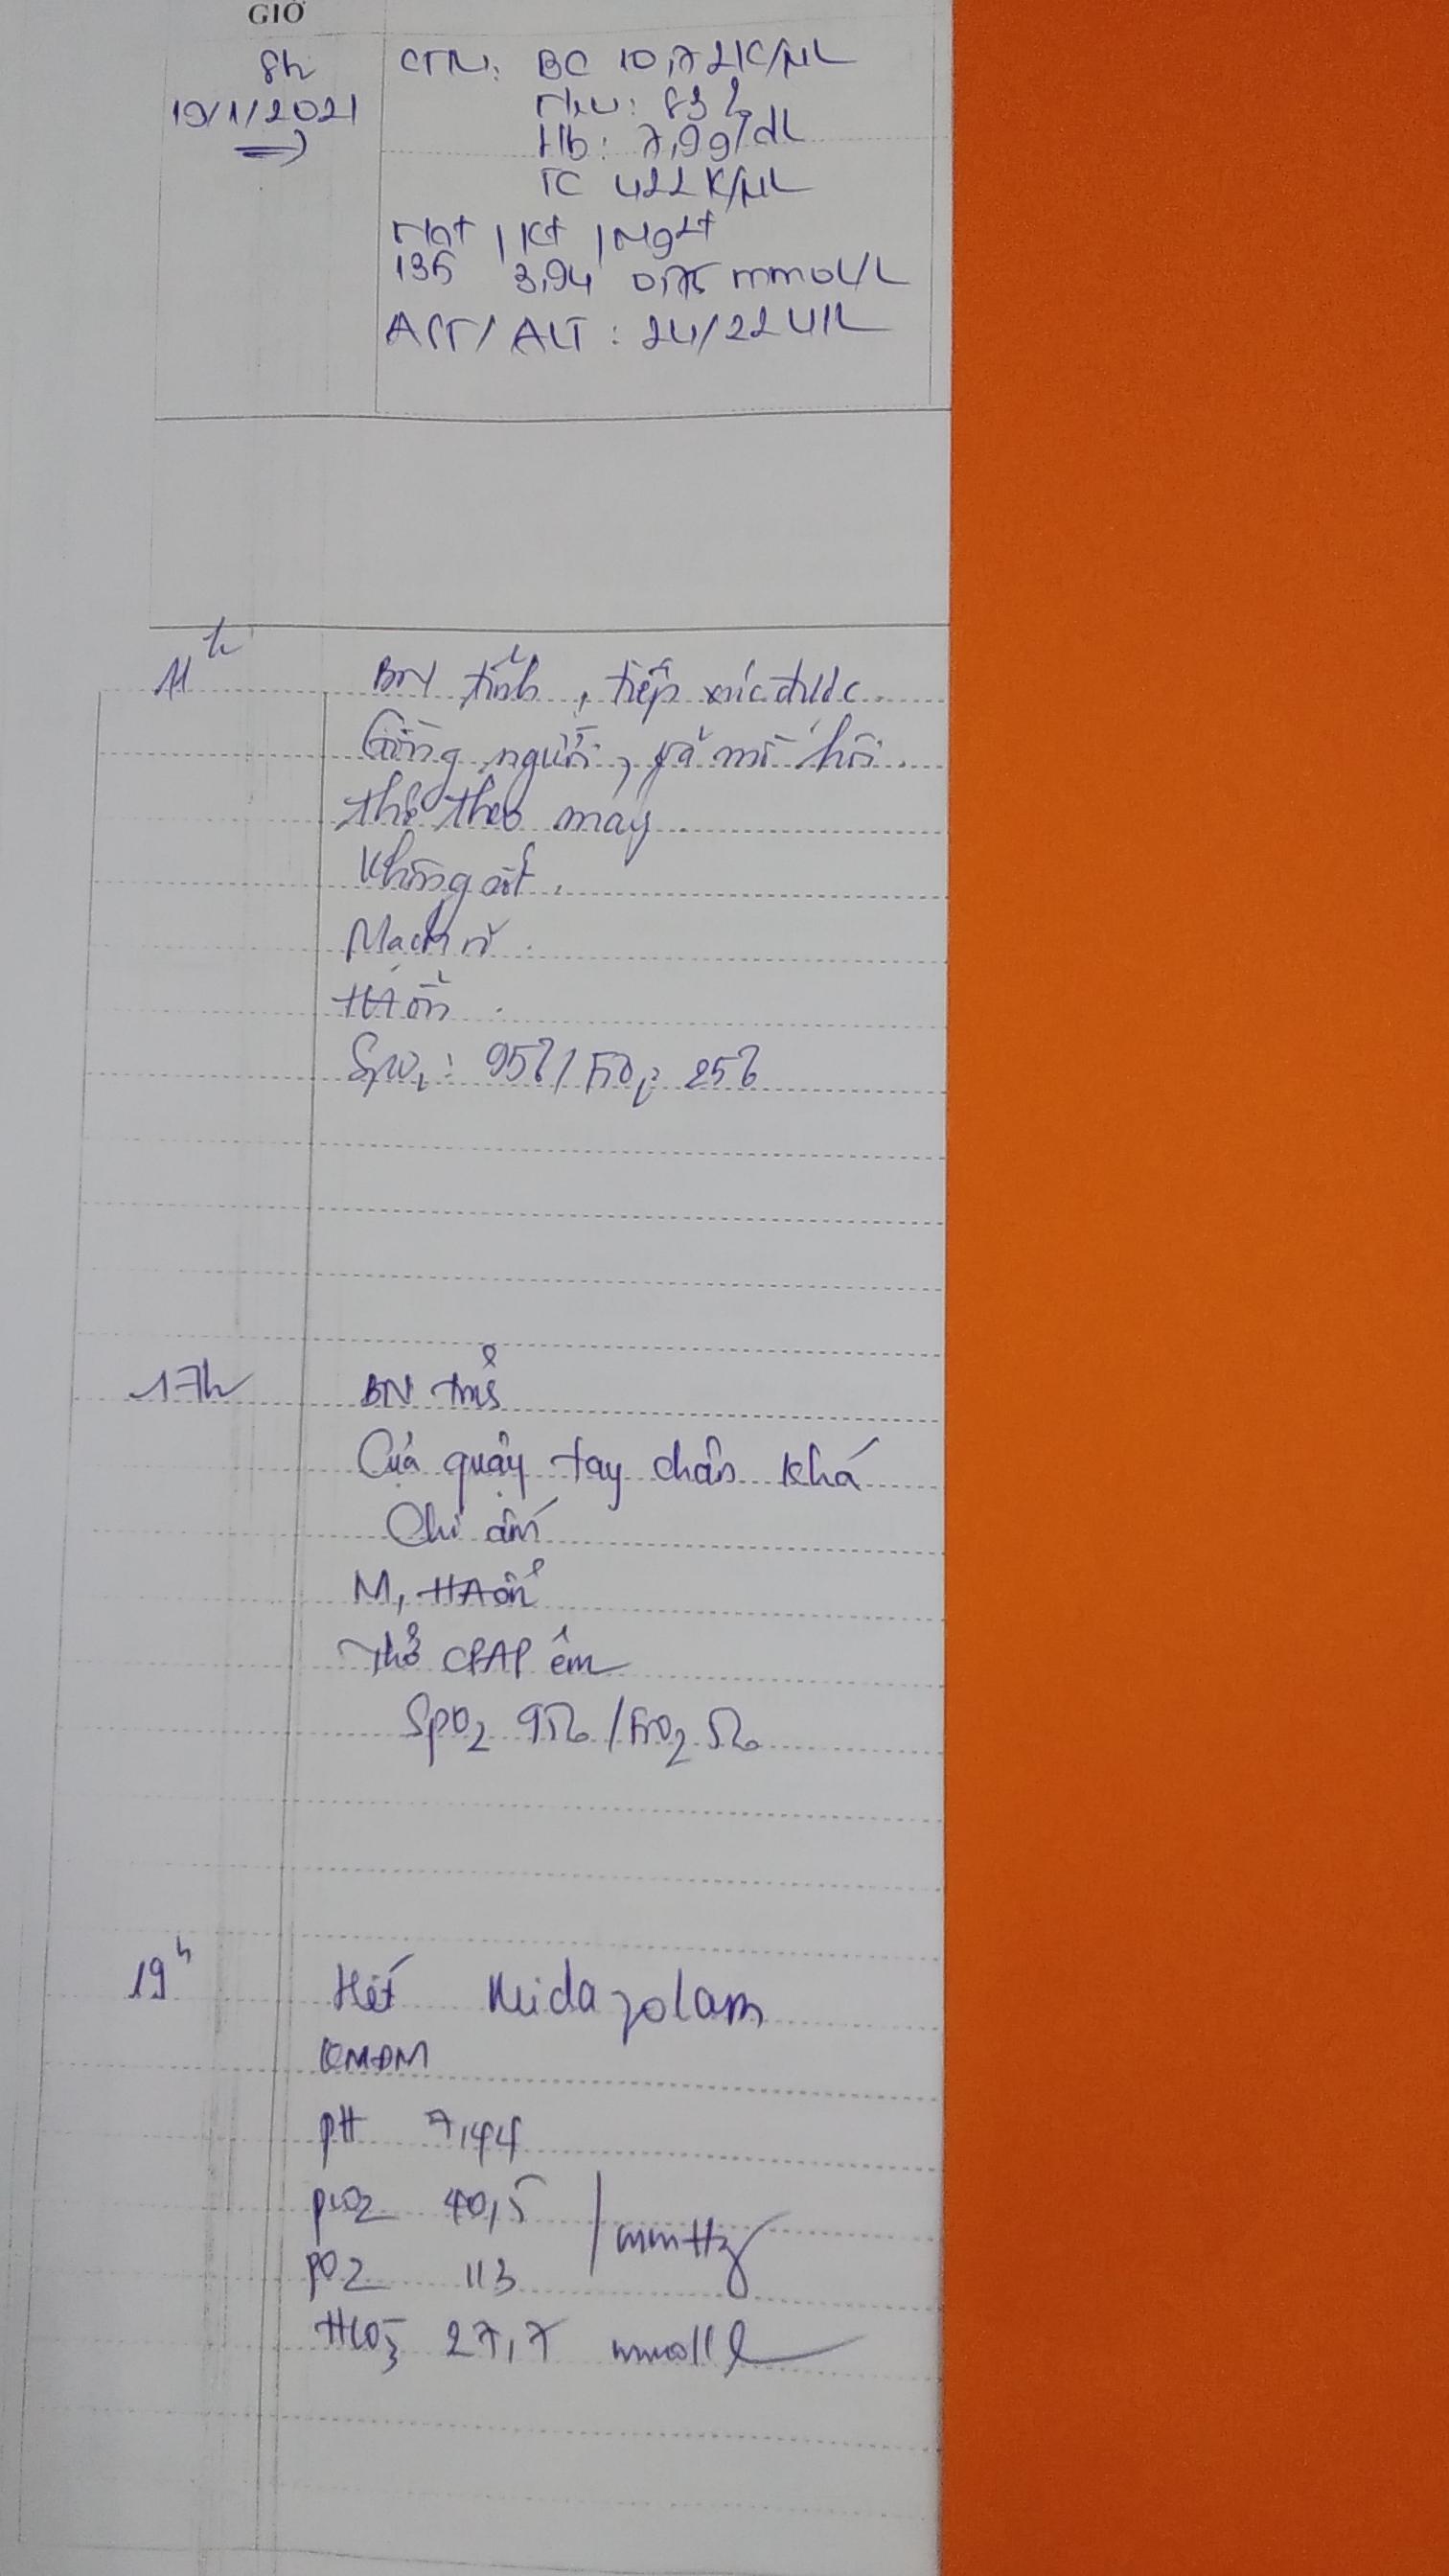 GIỜ
8h
19/1/2021
CTM: BC 10,72K/µL
Neu: 83%
Hb: 7,9g/dL
TC 422 K/µL
Na+ | K+ | Mg2+
135 3,94 0,75 mmol/L
AST/ALT: 24/22 U/L
11h
BN tỉnh, tiếp xúc được.
Gồng người, vã mồ hôi.
thở theo máy.
Không sốt.
Mạch rõ.
HA ổn.
SpO2: 95%/ FiO2: 25%
17h
BN tỉnh
Cựa quậy tay chân khá
Chi ấm
M, HA ổn
Thở CPAP êm
SpO2 /FiO2
19h
Hết Midazolam
KMĐM
pH 7,44
pCO2 40,5
mmHg
pO2 113
HCO3- 27,7 mmol/l